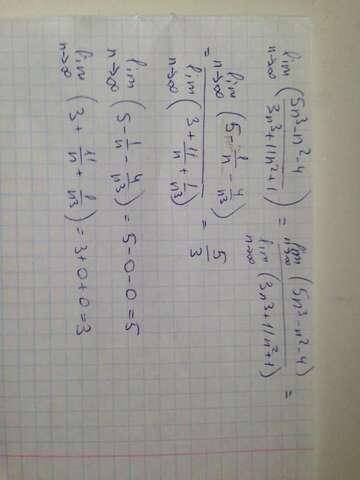 lim n→∞ (5n³-n²-4 / 3n³+11n²+1) = lim n→∞ (5n³-n²-4) / lim n→∞ (3n³+11n²+1) =
= lim n→∞ (5 - 1/n - 4/n³) / lim n→∞ (3 + 11/n + 1/n³) = 5/3
lim n→∞ (5 - 1/n - 4/n³) = 5-0-0=5
lim n→∞ (3 + 11/n + 1/n³) = 3+0+0=3